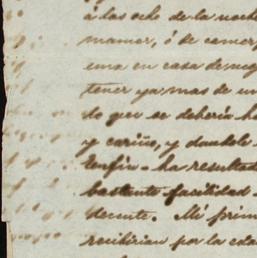 á las ocho de la noche
mamar, ó de comer
una en casa de
tener ya mas de un
do que se deberia ha
y cariño, y dandole
Enfin - ha resultad
bastante facilidad
decente. Mi prim
recibirian por la eda